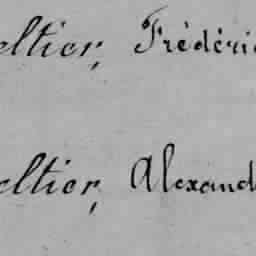 eltier, Frédéri
eltier, Alexand